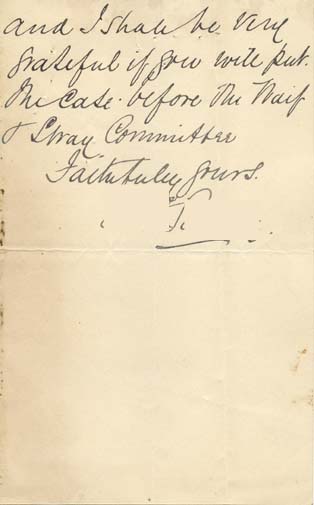 and I shall be very
grateful if you will put
the case before the Waif
& Stray Committee
Faithfully yours.
T.